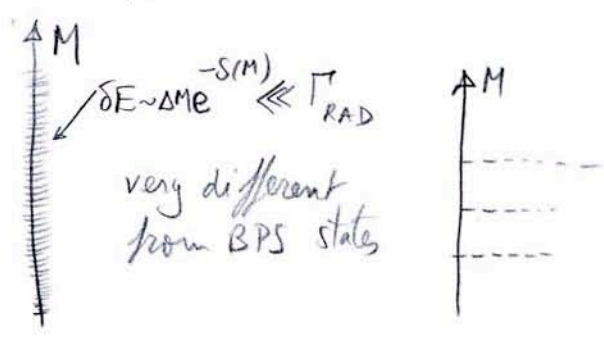 M
δE~ΔMe^{-S(M)} ⋘ Γ_{RAD}
very different
from BPS states
M